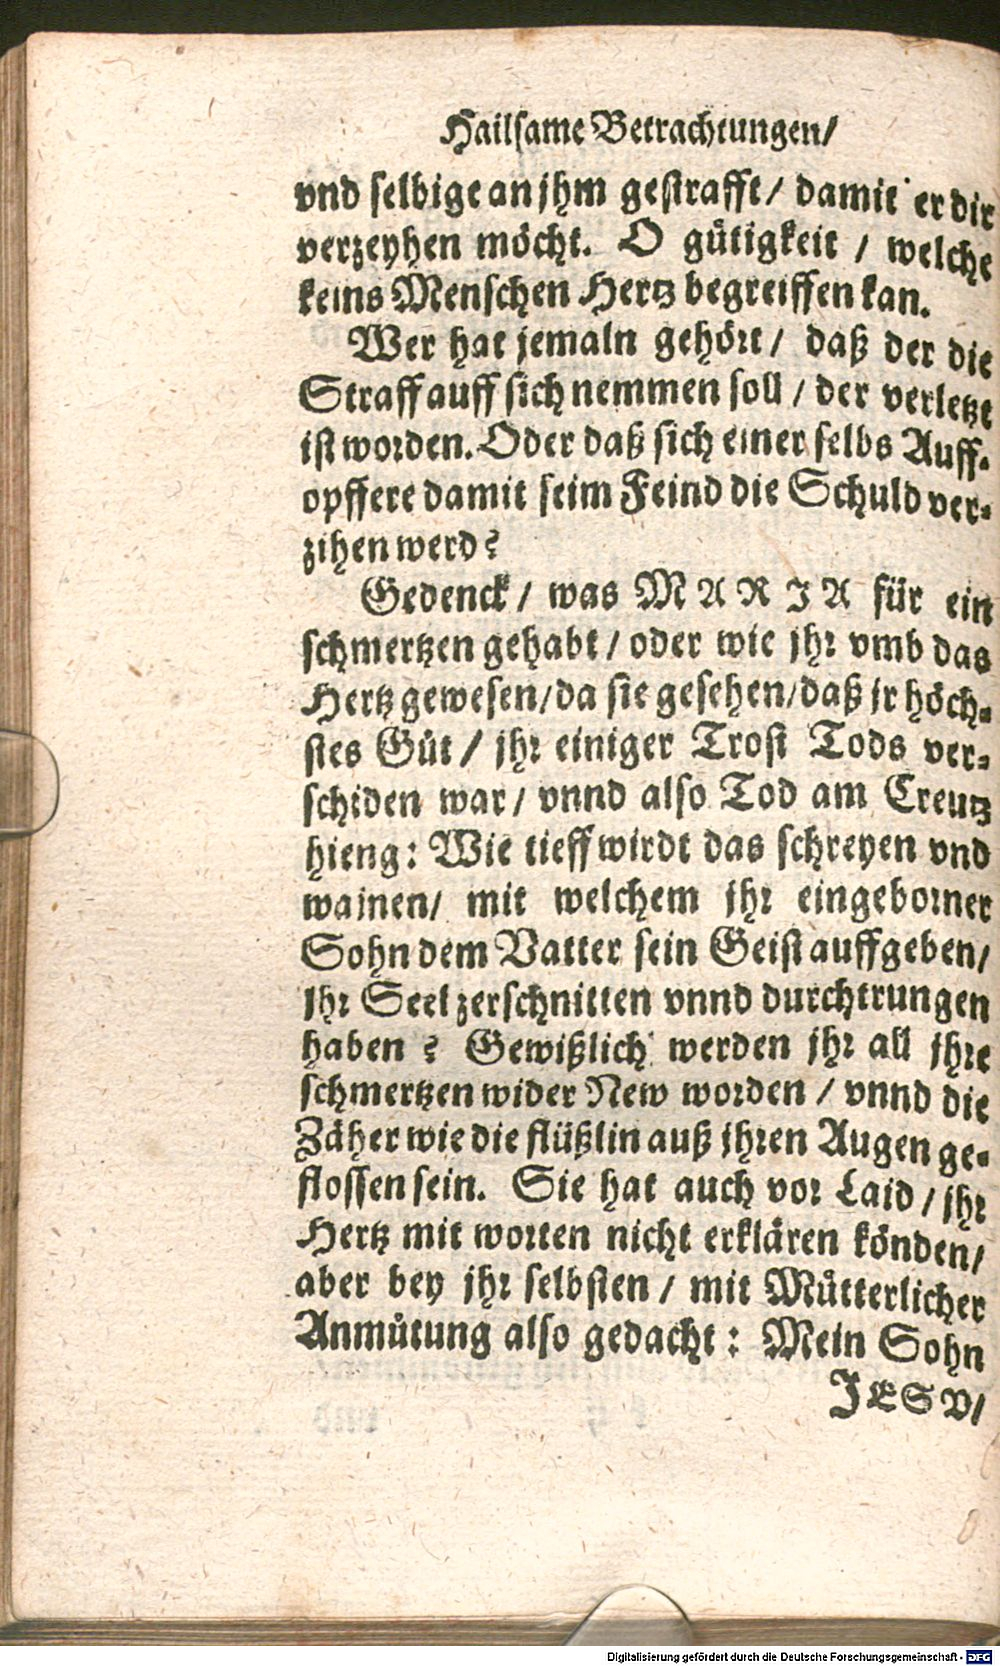 Hailsame Betrachtungen/
vnd selbige an jhm gestrafft/ damit er dir
verzeyhen möcht. O gůtigkeit / welche
keins Menschen Hertz begreiffen kan.
Wer hat jemaln gehört/ daß der die
Straff auff sich nemmen soll / der verletzt
ist worden. Oder daß sich einer selbs Auff-
opffere damit seim Feind die Schuld ver-
zihen werd?
Gedenck/ was MARJA für ein
schmertzen gehabt/ oder wie jhr vmb das
Hertz gewesen/ da sie gesehen/ daß jr höch-
stes Gůt/ jhr einiger Trost Tods ver-
schiden war/ vnnd also Tod am Creutz
hieng: Wie tieff wirdt das schreyen vnd
wainen/ mit welchem jhr eingeborner
Sohn dem Vatter sein Geist auffgeben/
jhr Seel zerschnitten vnnd durchtrungen
haben? Gewißlich werden jhr all jhre
schmertzen wider New worden / vnnd die
Zäher wie die flüßlin auß jhren Augen ge-
flossen sein. Sie hat auch vor Laid/ jhr
Hertz mit worten nicht erklären könden/
aber bey jhr selbsten/ mit Můtterlicher
Anmůtung also gedacht: Mein Sohn
JESV/
Digitalisierung gefördert durch die Deutsche Forschungsgemeinschaft - DFG